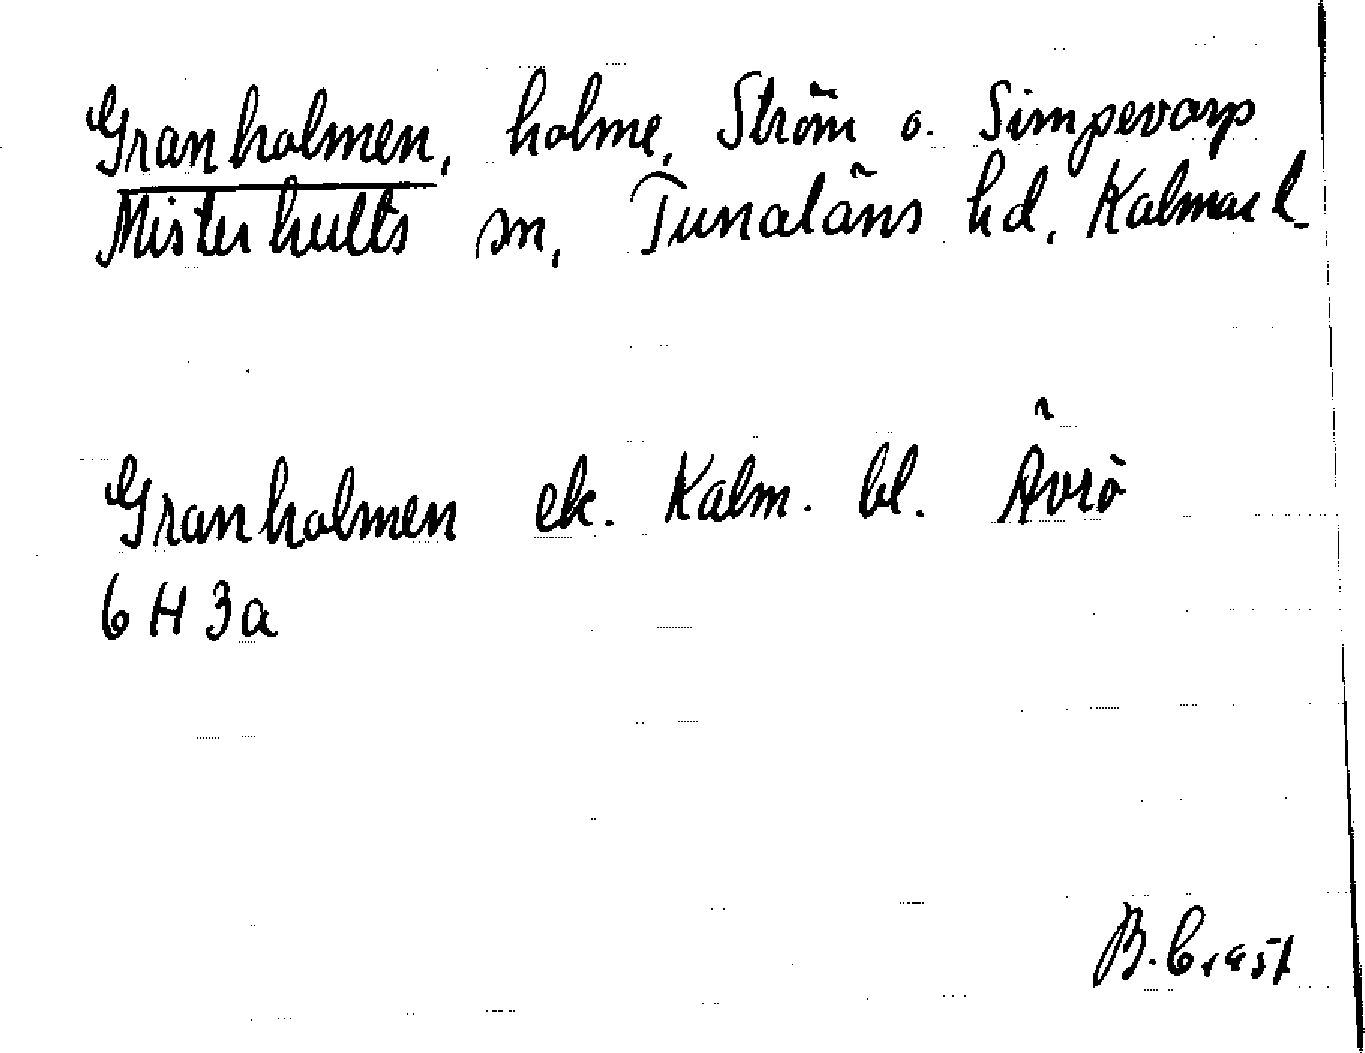 Granholmen, holme, Ström o. Simpevarp
Misterhults sn, Tunaläns hd, Kalmar l.
Granholmen ek. Kalm. bl. Ävrö
6H3a
B.